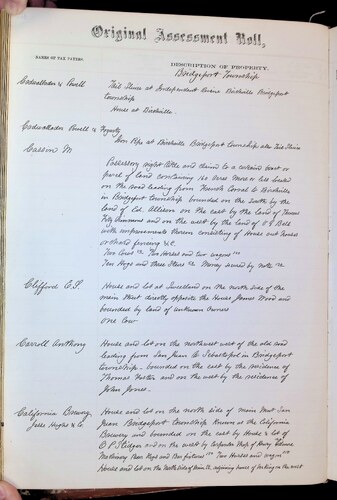 Original Assessment Roll,
NAMES OF TAX PAYERS.
DESCRIPTION OF PROPERTY.
Bridgeport Township
Cadwallader & Powell
This Flume at Independent Ravine Birchville Bridgeport
township
House at Birchville.
Cadwallader Powell & Fogarty
Iron Pipe at Birchville Bridgeport township also This Flume
Cassin M
Possessory right title and claim to a certain tract or
parcel of land containing 160 Acres More or less located
on the road leading from French Corral to Birchville
in Bridgeport township bounded on the South by the
land of Ed. Allison on the east by the land of Thomas
and on the west by the land of O S Bell
with improvements thereon consisting of House out Houses
orchard fencing &c.
Two Cows Two Horses and two wagons
Two Hogs and three Money secured by note
Clifford C. S.
House and lot at Sweetland on the north side of the
main Street directly opposite the House James Wood and
bounded by land of unknown owners
one Cow
Carroll Anthony
House and lot on the northwest west of the old road
leading from San Juan to Sebastopol in Bridgeport
township. bounded on the east by the residence of
Thomas Foster and on the west by the residence of
John Jones.
California Brewery
Hughes & Co.
House and lot on the north side of main Street San
Juan Bridgeport Township Known as the California
Brewery and bounded on the east by House & lot of
O P Stidger and on the west by Carpenter Shop of Henry
Beer Kegs and Bar fixtures Two Horses and wagon
House and lot on the North side of main St. adjoining house of on the west